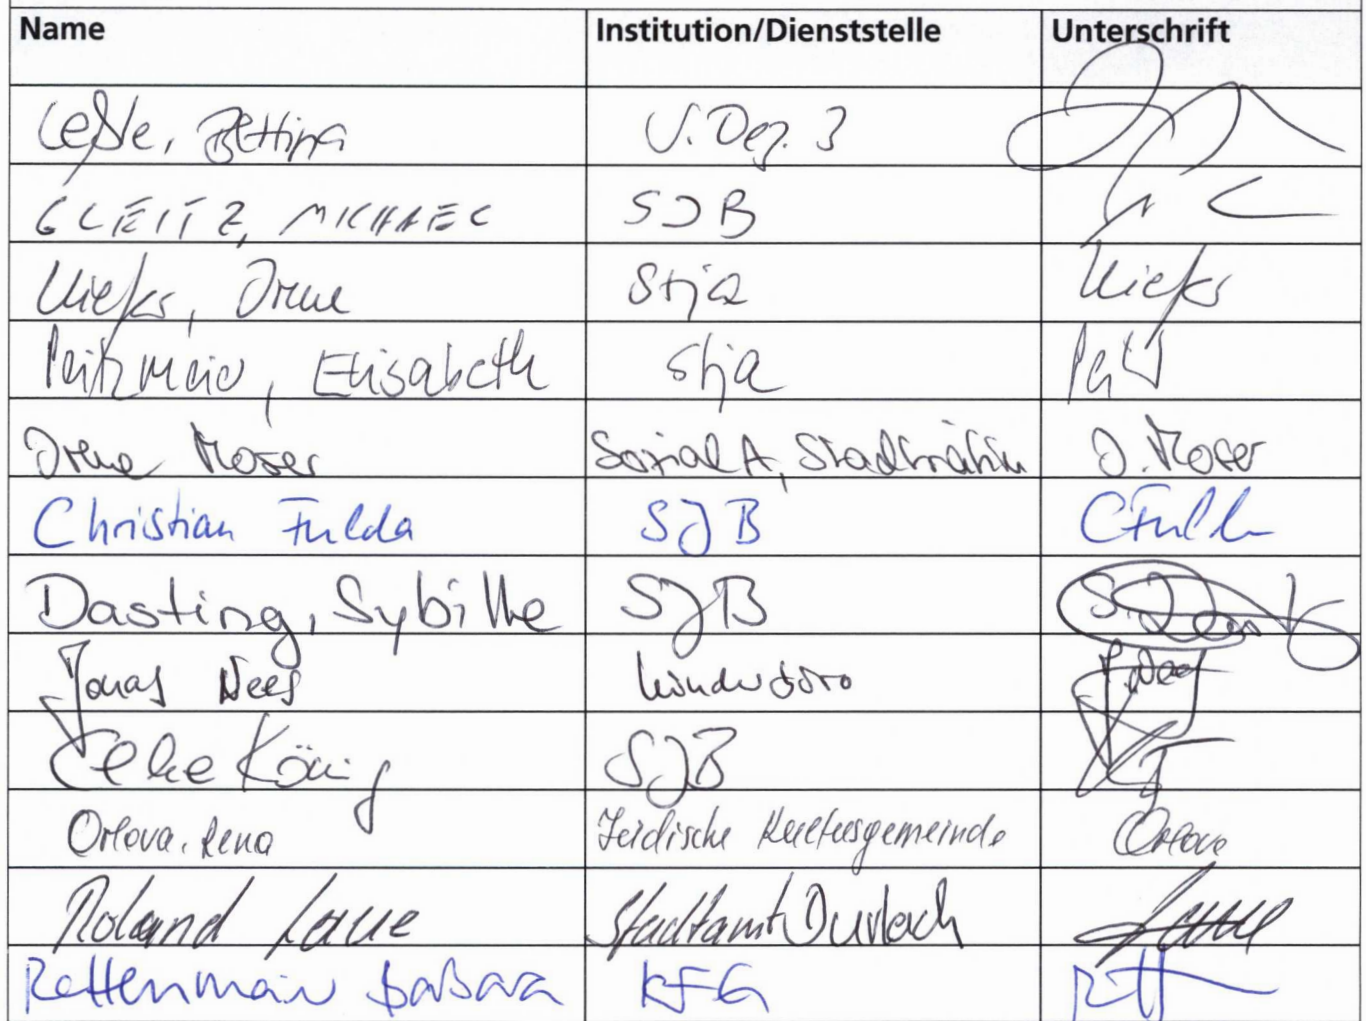 Name Institution/Dienststelle Unterschrift
Leßle, Bettina V. Dez. 3
GLEITZ, MICHAEL SJB
Irene stja
Elisabeth stja
Irene Moser Sozial A, Stadträtin I. Moser
Christian Fulda SJB CFulda
Dasting, Sybille SJB
Jonas Nees Kinderbüro J. Nees
Elke König SJB
Orlova, Lena Jüdische Kultusgemeinde Orlova
Roland Laue Stadtamt Durlach Laue
Rettenmair Barbara KFG